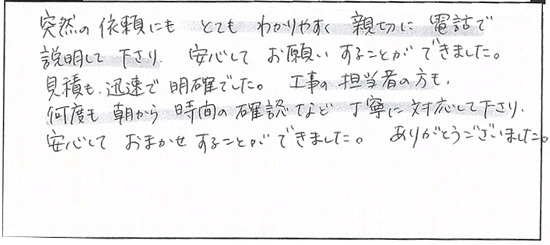 突然の依頼にも とても わかりやすく 親切に 電話で
説明して下さり、安心して お願いすることが できました。
見積も、迅速で 明確でした。 工事の 担当者の方も、
何度も 朝から 時間の確認など 丁寧に 対応して下さり、
安心して おまかせすることが できました。 ありがとうございました。